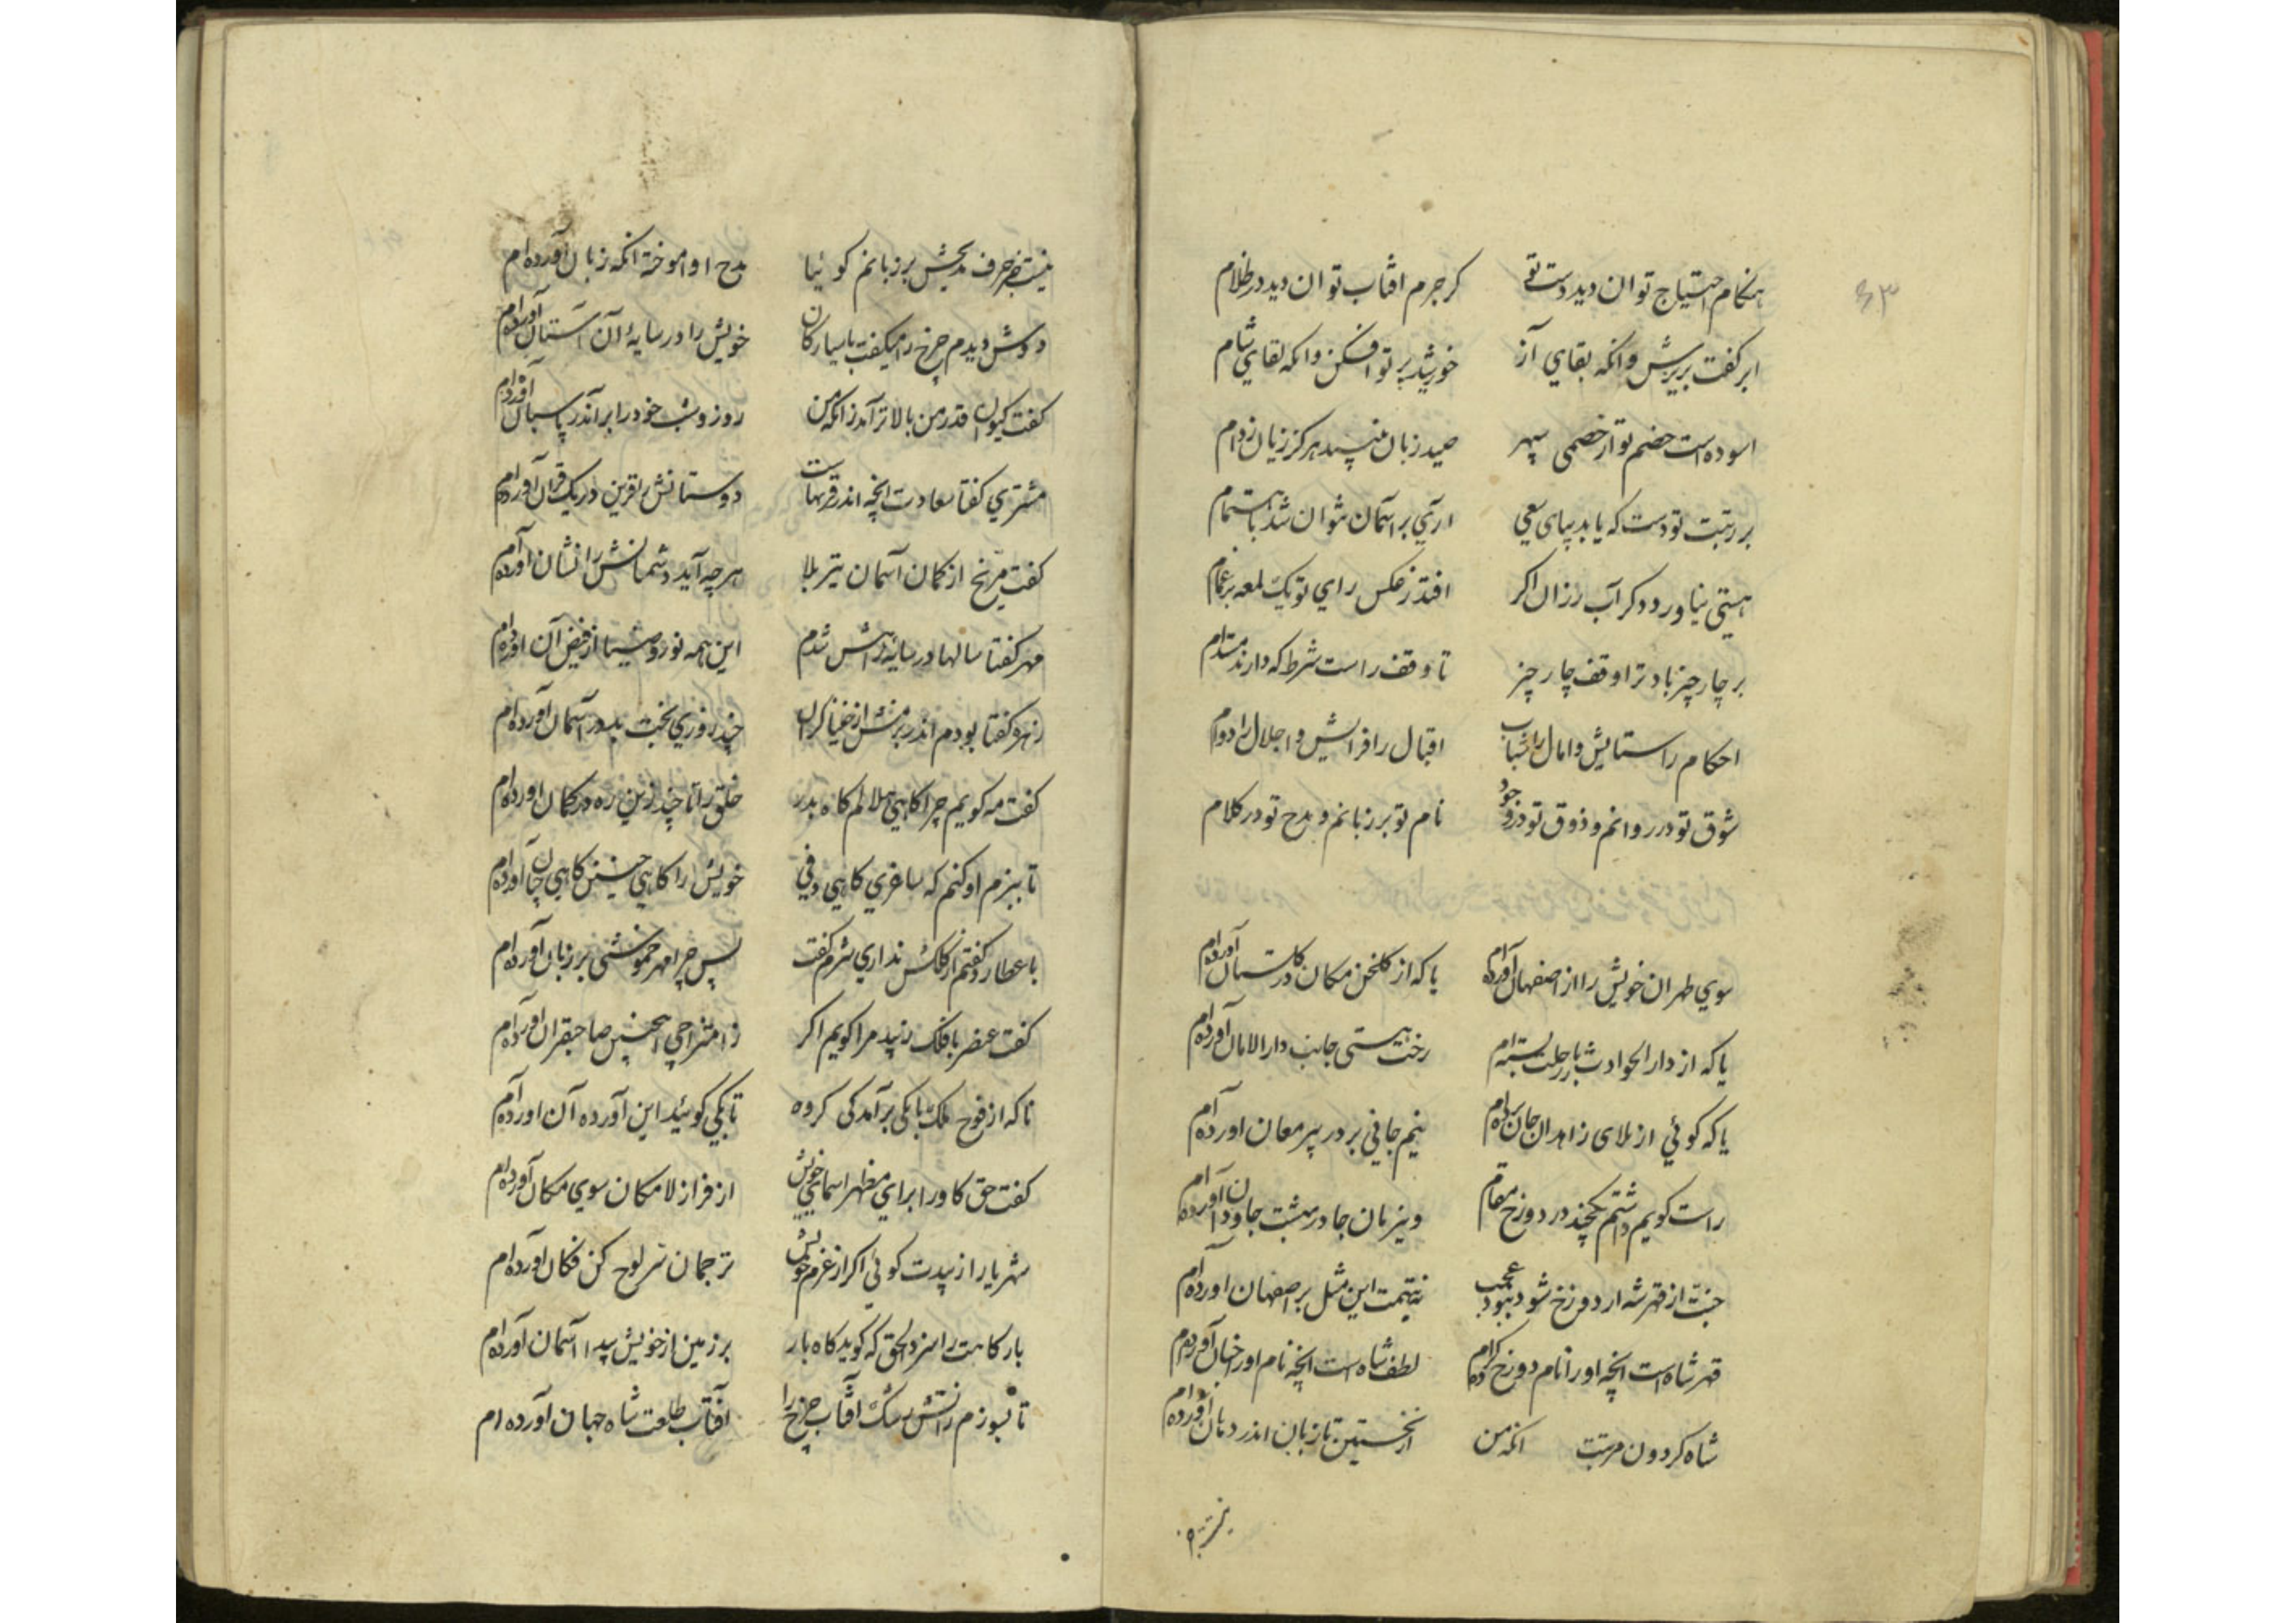 ۶۳
هنکام احتیاج توان دید دست تو کر جرم افتاب توان دید در ظلام
ابر کفت بریزش وانکه بقای آز خورشید پرتو افکن وانکه لقای شام
اسوده است خصم تو از خصمی سپهر صید زبان نبیند هرکز زیان ز دام
بر رتبت تو دست که یابد بپای سعی اری بر اسمان نتوان شد باهتمام
هستی نیاورد دکر آب رزان اکر افتد ز عکس رای تو یک لمعه بر غمام
بر چار چیز باد ترا وقف چار چیز تا وقف راست شرط که دارند مستدام
احکام را ستایش وامال را شباب اقبال را فزایش و اجلال را دوام
شوق تو در روانم و ذوق تو در وجود نام تو بر زبانم و مدح تو در کلام
سوی طهران خویش را از اصفهان آورده ام یا که از کلخن مکان در کلستان آورده ام
یا که از دار الحوادث بار رحلت بسته ام رخت هستی جانب دار الامان آورده ام
یا که کوئی از بلای زاهدان جان برده ام نیم جانی بر در پیر مغان اورده ام
راست کویم داشتم یکچند در دوزخ مقام وین زمان جا در بهشت جاودان آورده ام
جنت از قهر شه ار دوزخ شود نبود عجب نه بتهمت این مثل بر اصفهان اورده ام
قهر شاه است انچه او را نام دوزخ کرده ام لطف شاه است انچه نام او را جنان آورده ام
شاه کردون مرتبت انکه من از نخستین تا زبان اندر دهان آورده ام
نیست
نیست جز حرف مدیحش بر زبانم کوئیا مدح او اموخته انکه زبان آورده ام
دوش دیدم چرخ را میکفت با سیارکان خویش را در سایهٔ آن آستان آورده ام
کفت کیوان قدر من بالاتر آمد زانکه من روز و شب خود را برآندر پاسبان آورده ام
مشتری کفتا سعادت انچه اندر قرنهاست دوستانش را قرین در یک قران آورده ام
کفت مریخ از کمان آسمان تیر بلا هر چه آید دشمنانش را نشان آورده ام
مهر کفتا سالها در سایهٔ رایش شدم این همه نور و ضیا از فیض آن اورده ام
زهره کفتا بودم اندر بزمش از خنیاکران چند روزی بخت بد در آسمان آورده ام
کفت مه کویم چرا کاهی هلالم کاه بدر خلق را تا چند زین ره در کمان اورده ام
تا ببزم او کنم که ساغری کاهی دفی خویش را کاهی چنین کاهی چنان آورده ام
با عطارد کفتم از کلکش نداری شرم کفت پس چرا مهر خموشی بر زبان آورده ام
کفت عنصر با فلک زیبد مرا کویم اکر ز امتزاجی اینچنین صاحبقران اورده ام
ناکه از فوج ملک بانکی برآمد کی کروه تا بکی کوئید این آورده آن اورده ام
کفت حق کاو را برای مظهر اسمای خویش از فراز لامکان سوی مکان آورده ام
شهریارا زیبدت کوئی اکر از عزم خویش ترجمان سر لوح کن فکان اورده ام
بارکاهت را سزد الحق که کوید کاه بار بر زمین از خویش پیدا آسمان آورده ام
تا بسوزم زاتش رشک آفتاب چرخ را آفتاب طلعت شاه جهان آورده ام